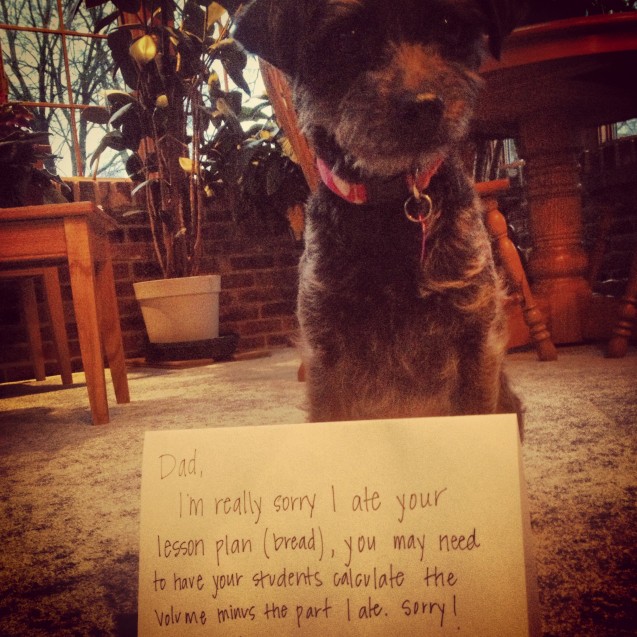 Dad,
I'm really sorry I ate your
lesson plan (bread), you may need
to have your students calculate the
volume minus the part I ate. Sorry!